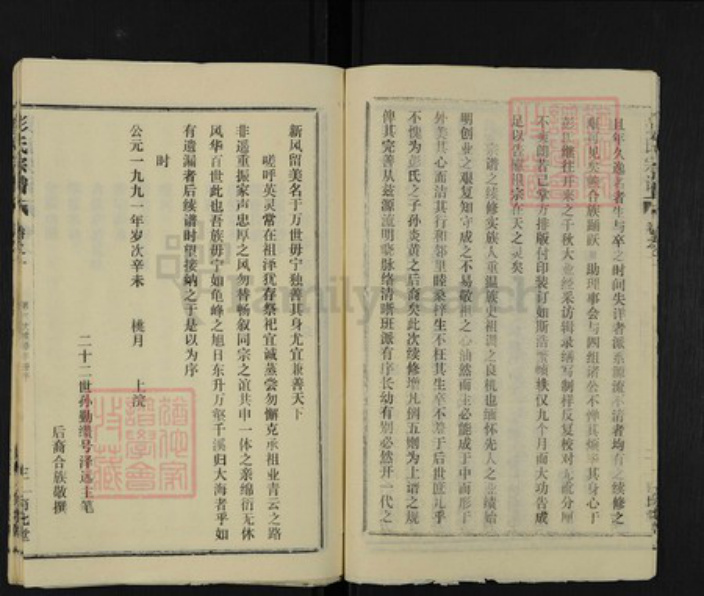 且年久逸名者生与卒之时间失详者派系源流不清者均有之续修之
艰可见矣合族踊跃助理事会与四组诸公不惮其烦其身心于
彭氏继往开来之千秋大业经采访辑录缮写制样反复校对无讹分厘
不爽朗若已掌方排版付印装订如斯浩帙仅九个月而大功告成
足以告慰祖宗在天之灵矣
宗谱之续修实族人重温族史祖训之良机也缅怀先人之业绩始
明创业之艰复知守成之不易敬祖之心油然而生必能成于中而形于
外美其心而洁其行和邻里睦桑梓生不枉其生卒不羞于后世庶几乎
不愧为彭氏之子孙炎黄之后裔矣此次续修增凡例五则为上谱之规
俾其完善从兹源流明脉络清晰班派有序长幼有别必然开一代之
新风留美名于万世毋宁独善其身尤宜兼善天下
嗟呼英灵常在祖泽犹存祭祀宜诚蒸尝勿懈克承祖业青云之路
非遥重振家声忠厚之风勿替畅叙同宗之谊共申一体之亲绵衍无休
风华百世此也吾族毋宁如龟峰之旭日东升万壑千溪归大海者乎如
有遗漏者后续谱时望接纳之于是以为序
时
公元一九九一年岁次辛未 桃月 上浣
二十二世孙勤缵号泽远主笔
后裔合族敬撰
氏宗谱
FamilySearch